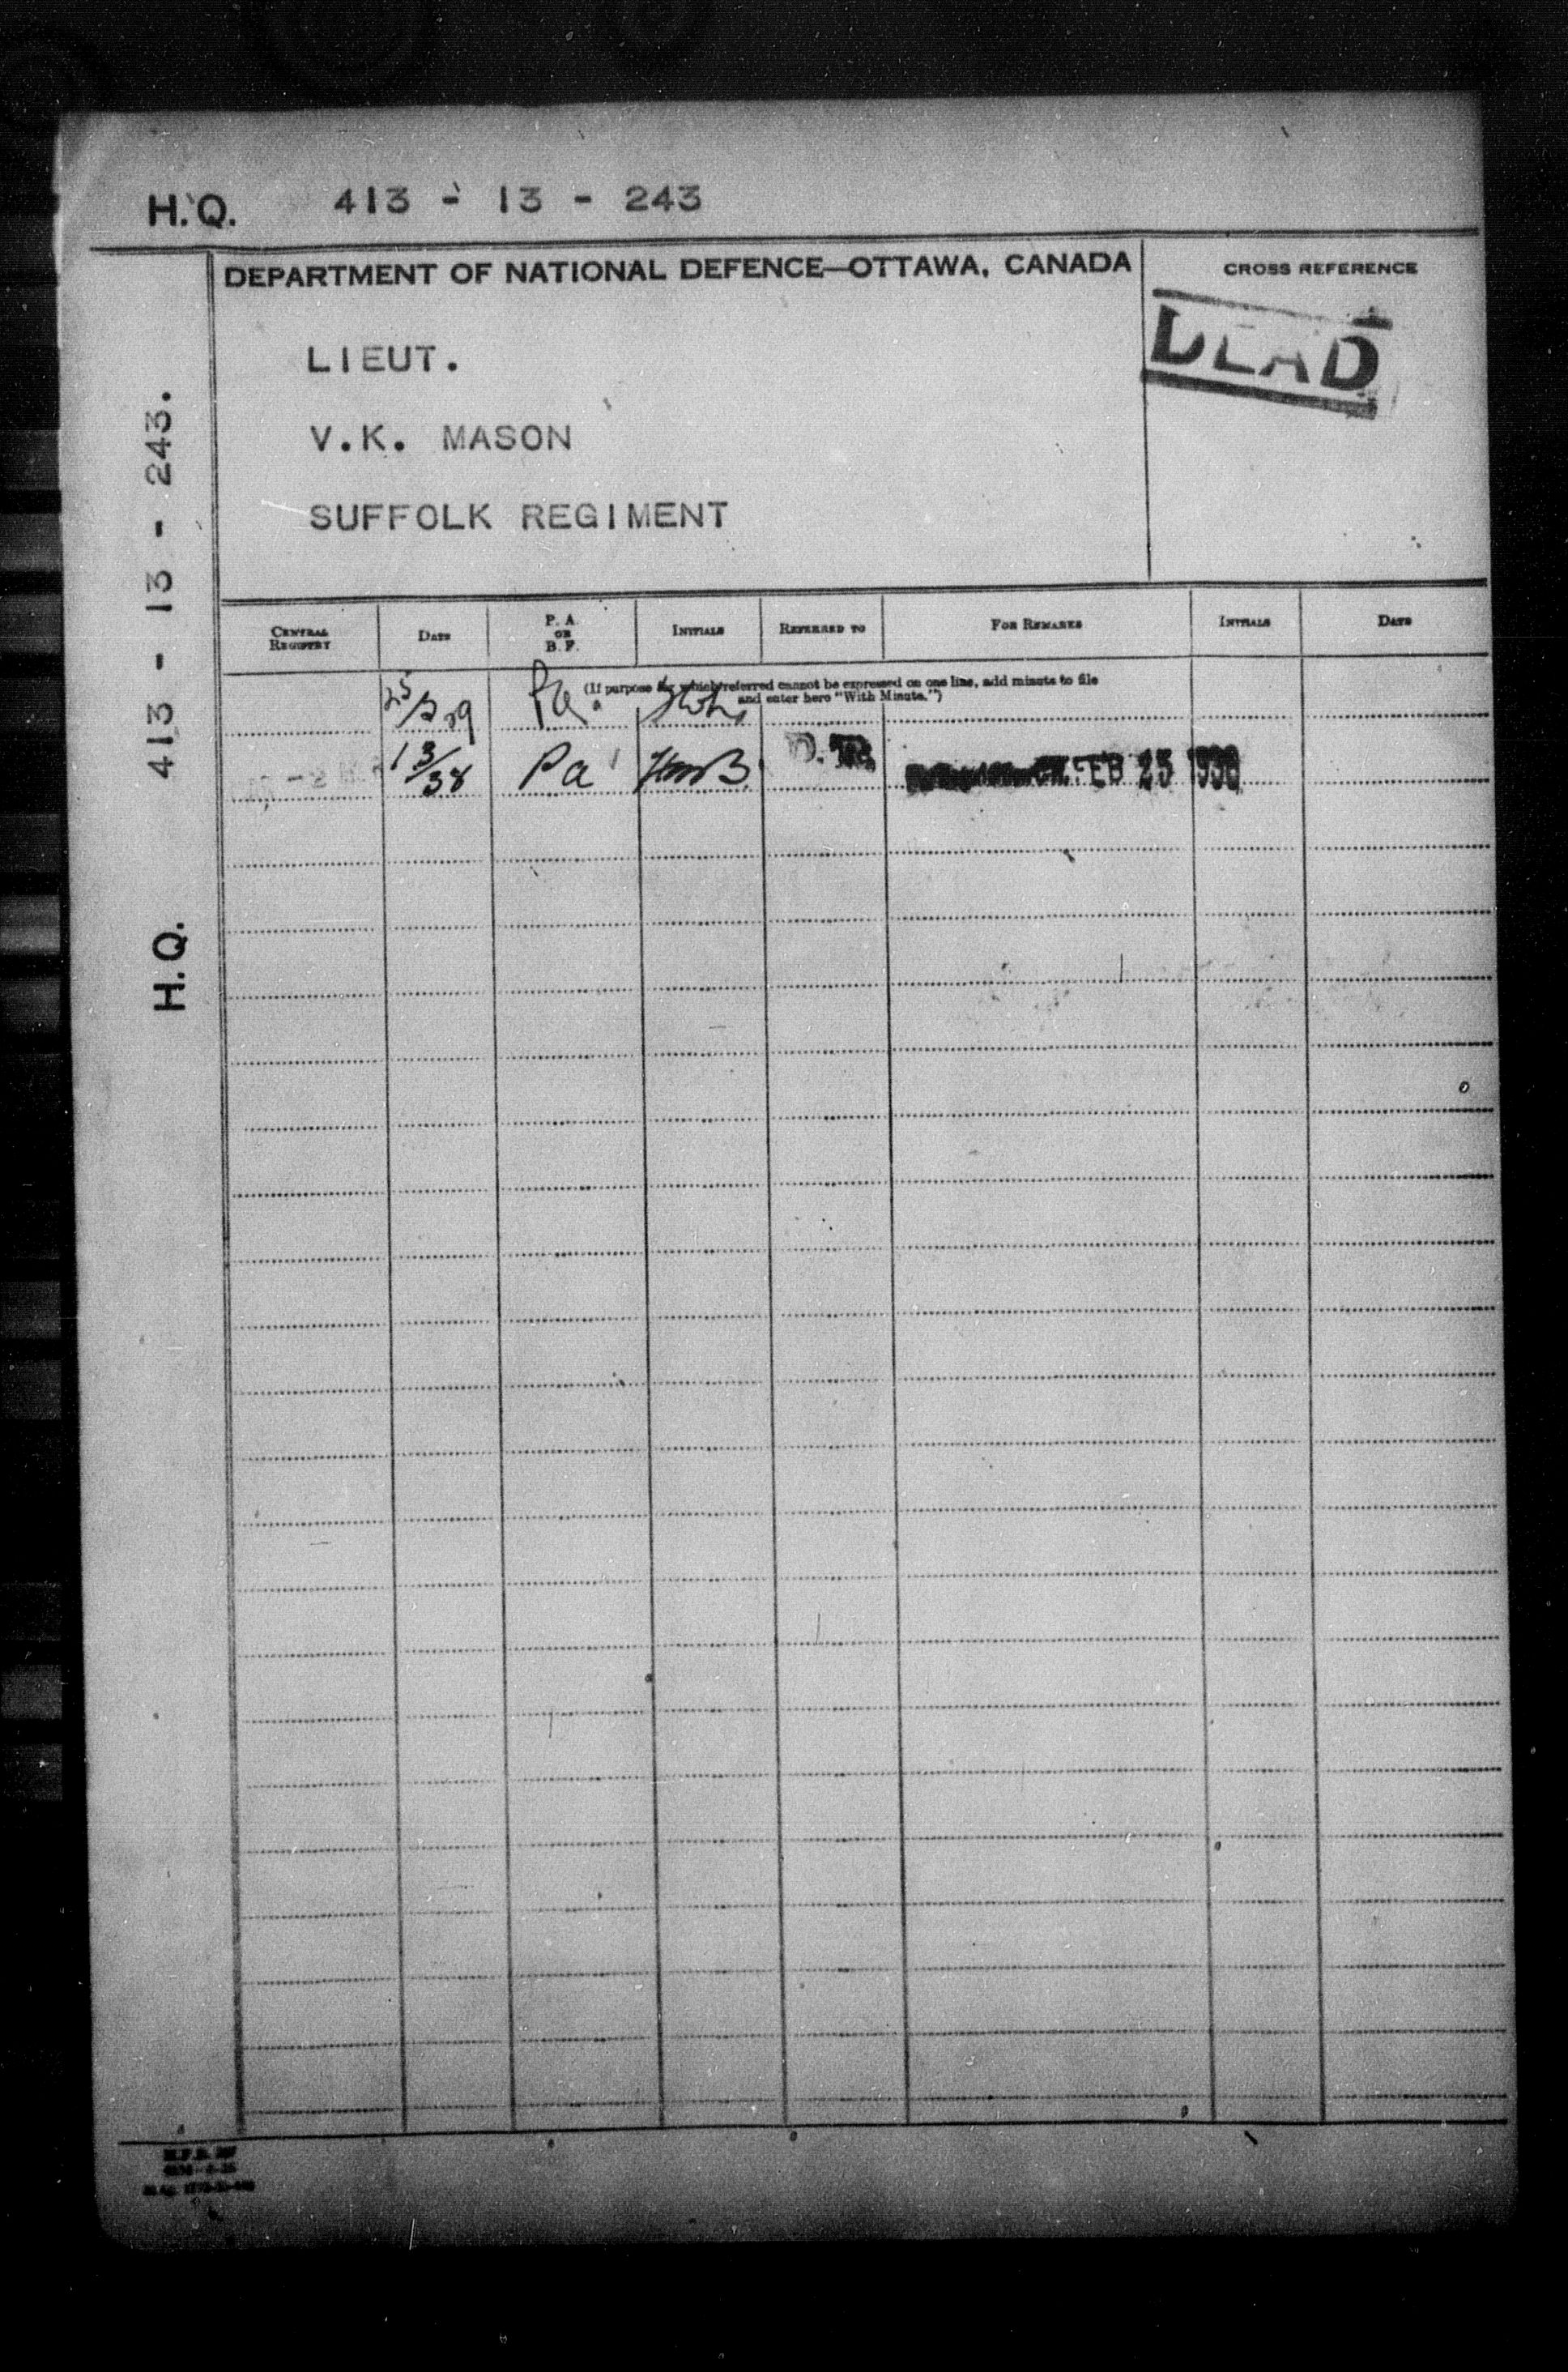 H.Q. 413 - 13 - 243
DEPARTMENT OF NATIONAL DEFENCE—OTTAWA, CANADA
CROSS REFERENCE
DEAD
LIEUT.
V.K. MASON
SUFFOLK REGIMENT
H.Q. 413 - 13 - 243.
CENTRAL REGISTRY
DATE
P. A. OR B. F.
INITIALS
REFERRED TO
FOR REMARKS
INITIALS
DATE
(If purpose for which referred cannot be expressed on one line, add minute to file
and enter here "With Minute.")
Pa.
13/38 Pa